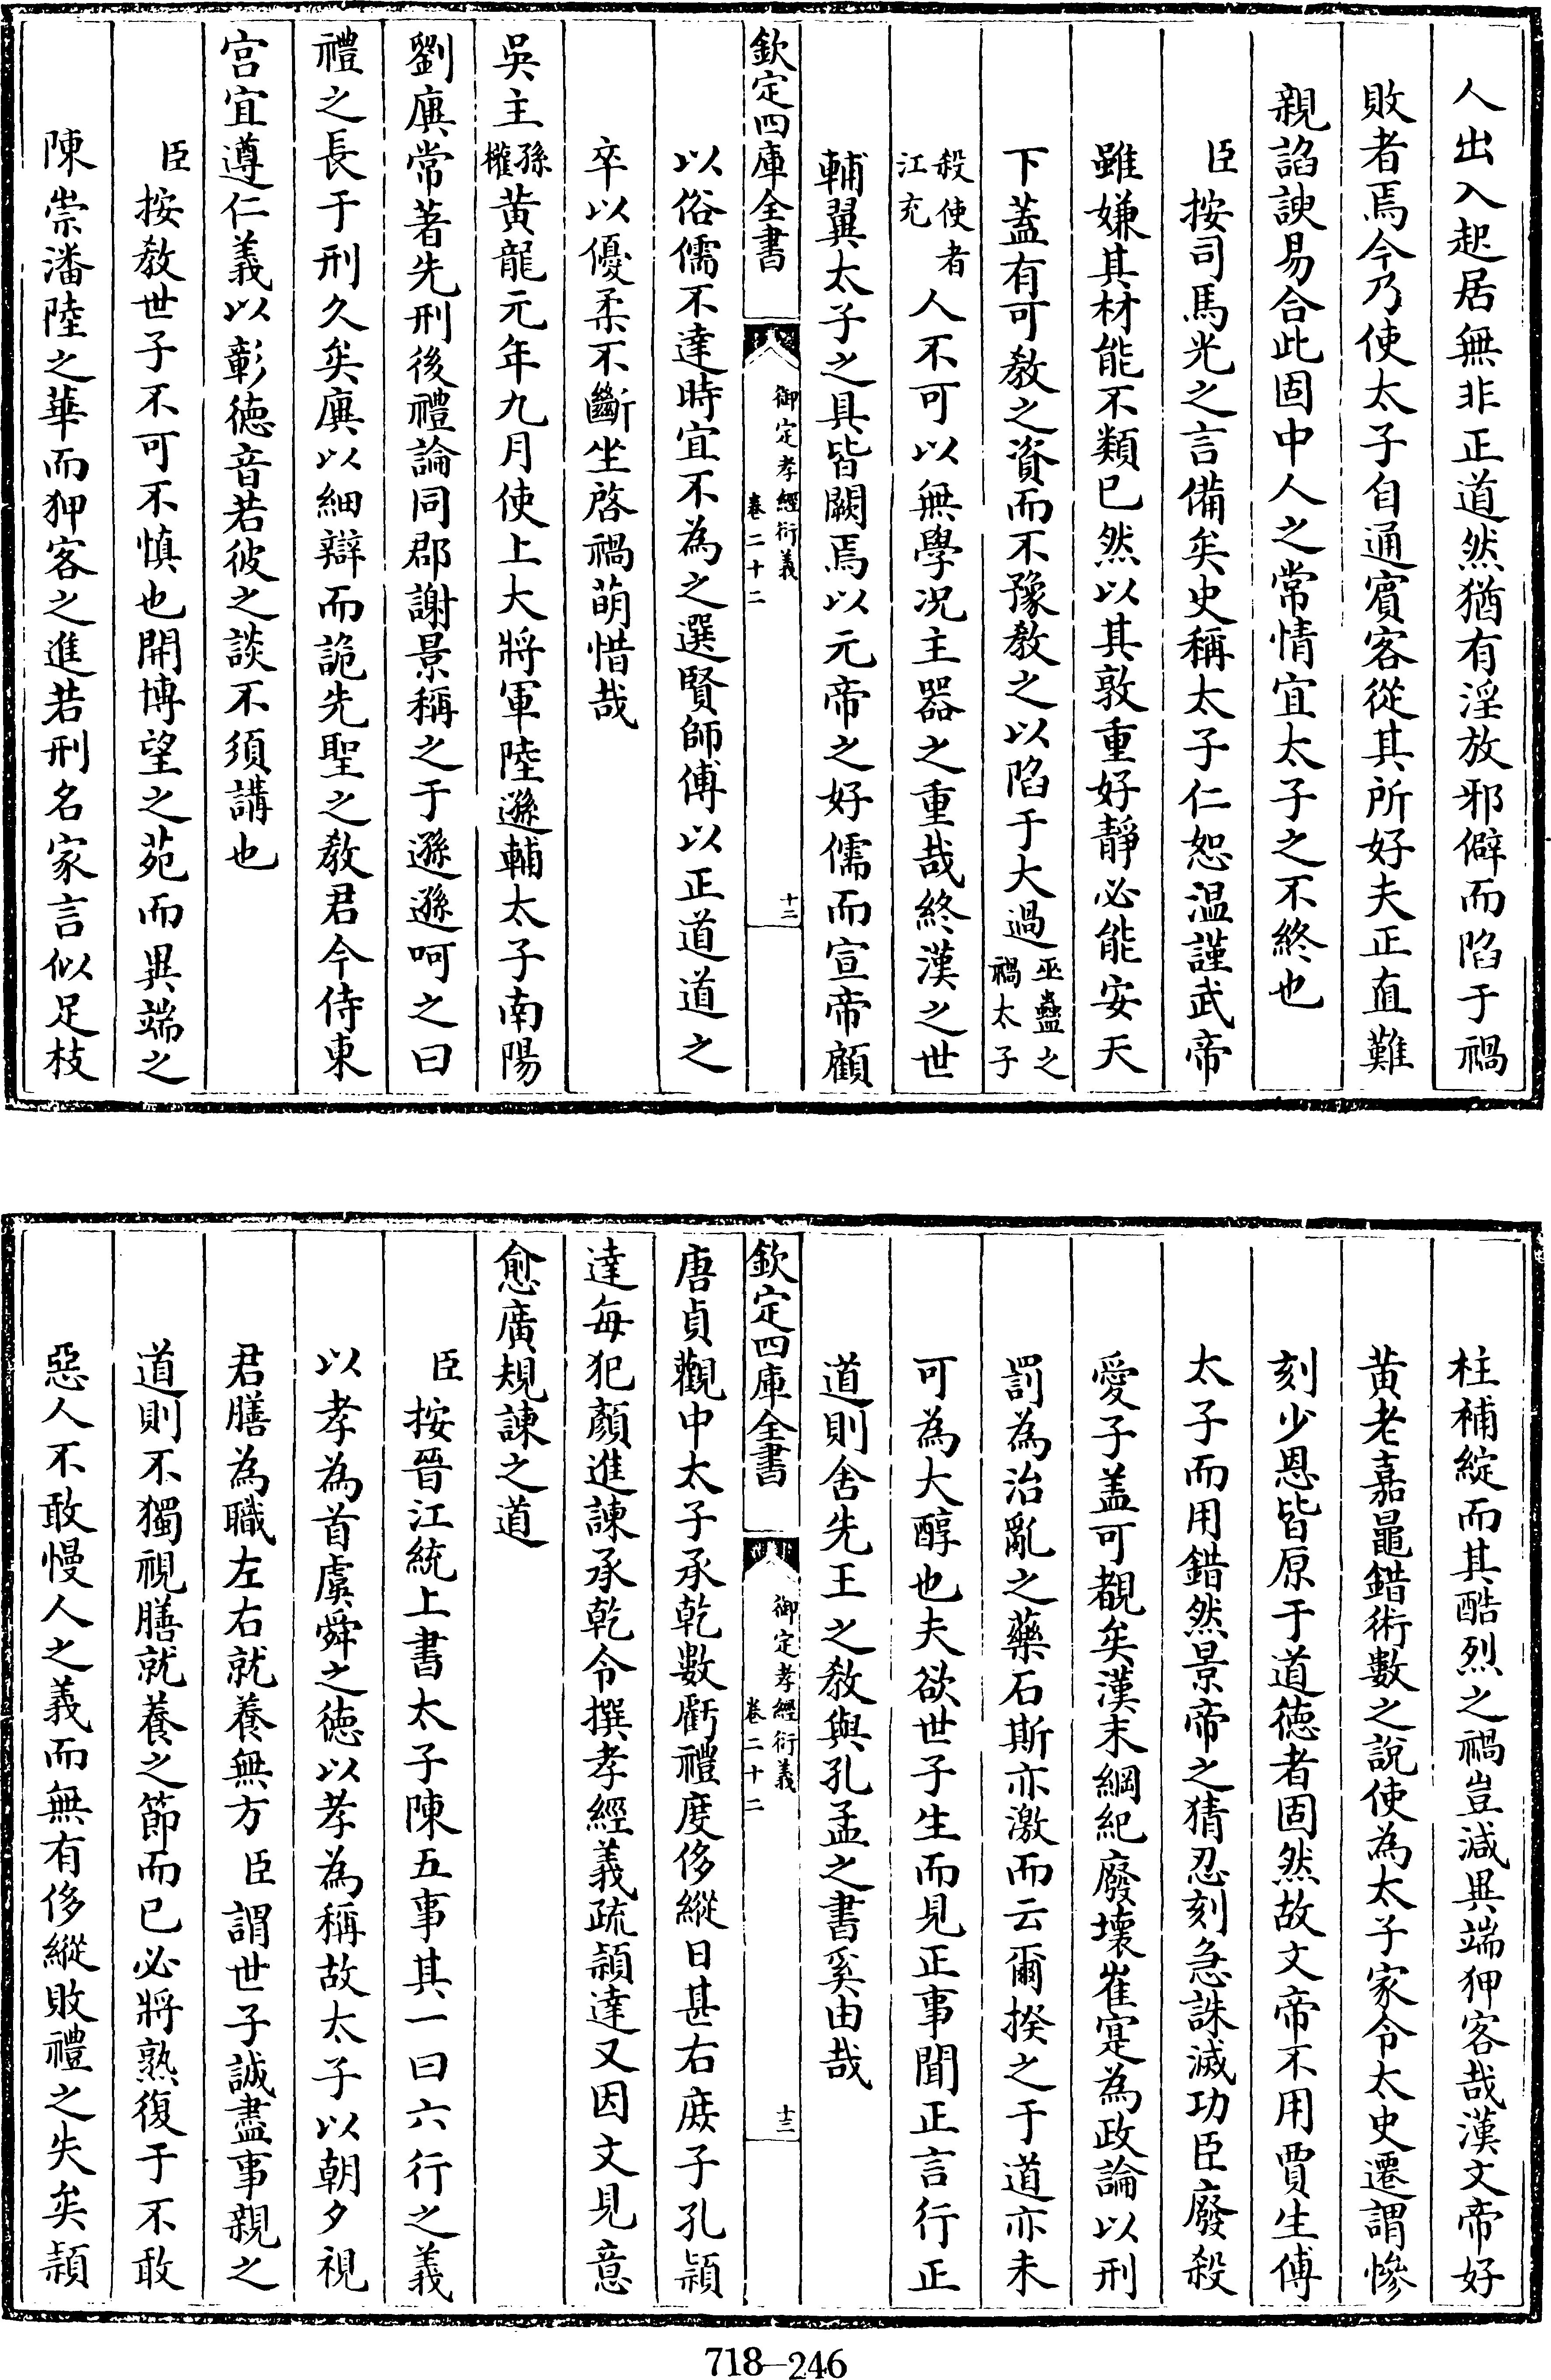 人出入起居無非正道然猶有淫放邪僻而陷于禍
敗者焉今乃使太子自通賓客從其所好夫正直難
親諂諛易合此固中人之常情宜太子之不終也
臣按司馬光之言備矣史稱太子仁恕温謹武帝
雖嫌其材能不類已然以其敦重好靜必能安天
下蓋有可教之資而不豫教之以陷于大過巫蠱之禍太子
殺使者江充人不可以無學况主器之重哉終漢之世
輔翼太子之具皆闕焉以元帝之好儒而宣帝顧
欽定四庫全書
御定孝經衍義
卷二十二
十二
以俗儒不達時宜不為之選賢師傅以正道道之
卒以優柔不斷坐啓禍萌惜哉
吳主孫權黄龍元年九月使上大將軍陸遜輔太子南陽
劉廙常著先刑後禮論同郡謝景稱之于遜遜呵之曰
禮之長于刑久矣廙以細辯而詭先聖之教君今侍東
宫宜遵仁義以彰德音若彼之談不須講也
臣按教世子不可不慎也開博望之苑而異端之
陳崇潘陸之華而狎客之進若刑名家言似足枝
柱補綻而其酷烈之禍豈減異端狎客哉漢文帝好
黄老嘉鼂錯術數之說使為太子家令太史遷謂慘
刻少恩皆原于道德者固然故文帝不用賈生傅
太子而用錯然景帝之猜忍刻急誅滅功臣廢殺
愛子盖可覩矣漢末綱紀廢壞崔寔為政論以刑
罰為治亂之藥石斯亦激而云爾揆之于道亦未
可為大醇也夫欲世子生而見正事聞正言行正
道則舍先王之教與孔孟之書奚由哉
欽定四庫全書
御定孝經衍義
卷二十二
十三
唐貞觀中太子承乾數虧禮度侈縱日甚右庶子孔頴
達每犯顏進諫承乾令撰孝經義疏頴達又因文見意
愈廣規諫之道
臣按晉江統上書太子陳五事其一曰六行之義
以孝為首虞舜之德以孝為稱故太子以朝夕視
君膳為職左右就養無方臣謂世子誠盡事親之
道則不獨視膳就養之節而已必將熟復于不敢
惡人不敢慢人之義而無有侈縱敗禮之失矣頴
718—246